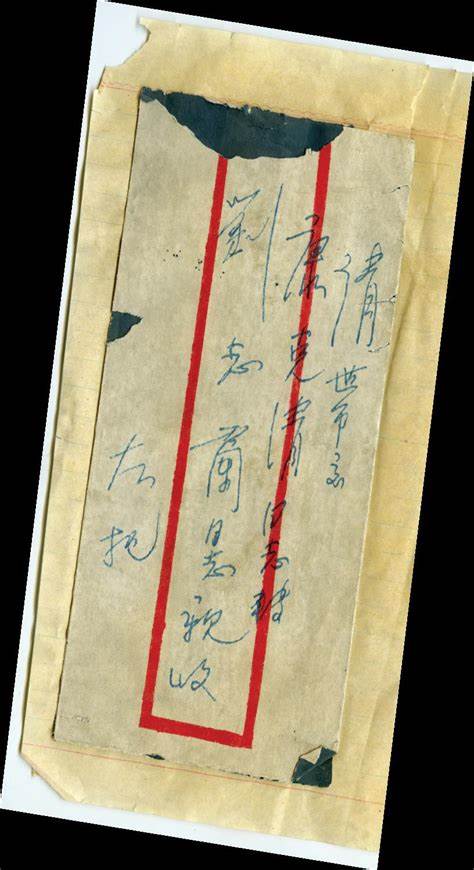 请帶交
康克清同志轉
劉志蘭同志親收
左托